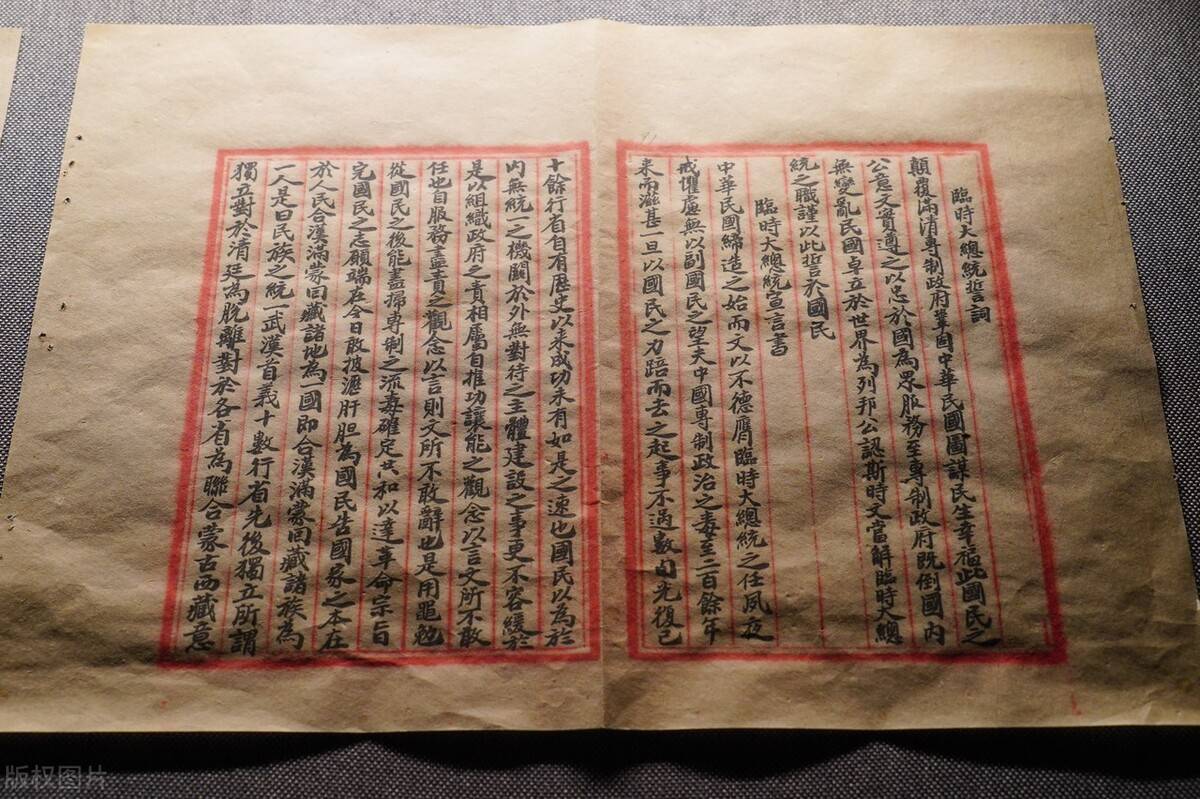 臨時大總統誓詞
顛覆滿清專制政府鞏固中華民國圖謀民生幸福此國民之
公意文實遵之以忠於國為眾服務至專制政府既倒國內
無變亂民國卓立於世界為列邦公認斯時文當解臨時大總
統之職謹以此誓於國民
臨時大總統宣言書
中華民國締造之始而文以不德膺臨時大總統之任夙夜
戒懼慮無以副國民之望夫中國專制政治之毒至二百餘年
来而滋甚一旦以國民之力踣而去之起事不過數旬光復已
十餘行省自有歷史以来成功未有如是之速也國民以為於
内無統一之機關於外無對待之主體建設之事更不容緩於
是以組織政府之責相屬自推功讓能之觀念以言文所不敢
任也自服務盡責之觀念以言則文所不敢辭也是用黽勉
從國民之後能盡掃專制之流毒確定共和以達革命宗旨
完國民之志願端在今日敢披瀝肝胆為國民告國家之本在
於人民合漢滿蒙回藏諸地為一國即合漢滿蒙回藏諸族為
一人是曰民族之統一武漢首義十數行省先後獨立所謂
獨立對於清廷為脫離對於各省為聯合蒙古西藏意
版权图片